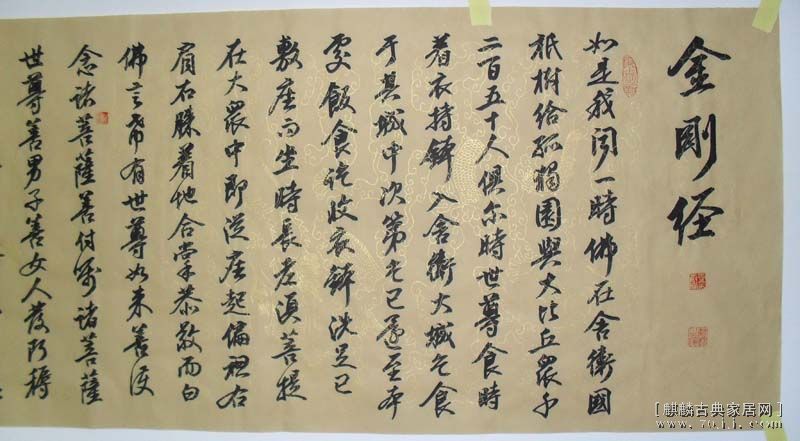 金剛经
如是我闻一時佛在舍衛國
祇樹给孤獨園與大比丘眾千
二百五十人俱尔時世尊食時
着衣持鉢入舍衛大城乞食
于其城中次第乞已還至本
處飯食訖收衣鉢洗足已
敷座而坐時長老須菩提
在大眾中即從座起偏袒右
肩右膝着地合掌恭敬而白
佛言希有世尊如来善护
念諸菩薩善付嘱諸菩薩
世尊善男子善女人發阿耨
[麒麟古典家居网]